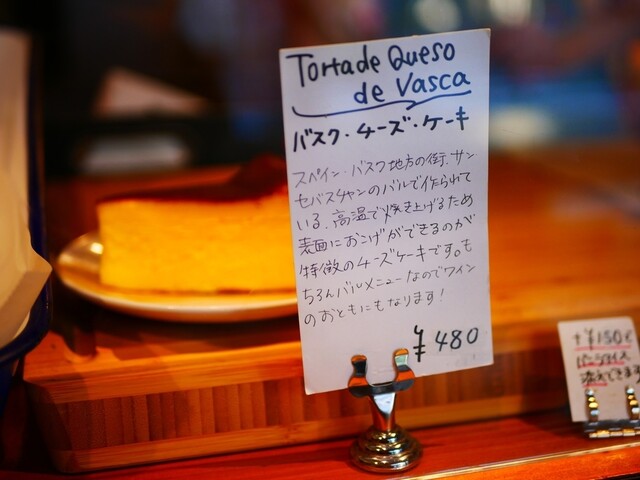 Torta de Queso
de Vasca
バスク・チーズ・ケーキ
スペイン・バスク地方の街、サン
セバスチャンのバルで作られて
いる、高温で焼き上げるため
表面におこげができるのが
特徴のチーズケーキです。も
ちろんバルメニューなのでワイン
のおともにもなります!
¥480
+¥150で